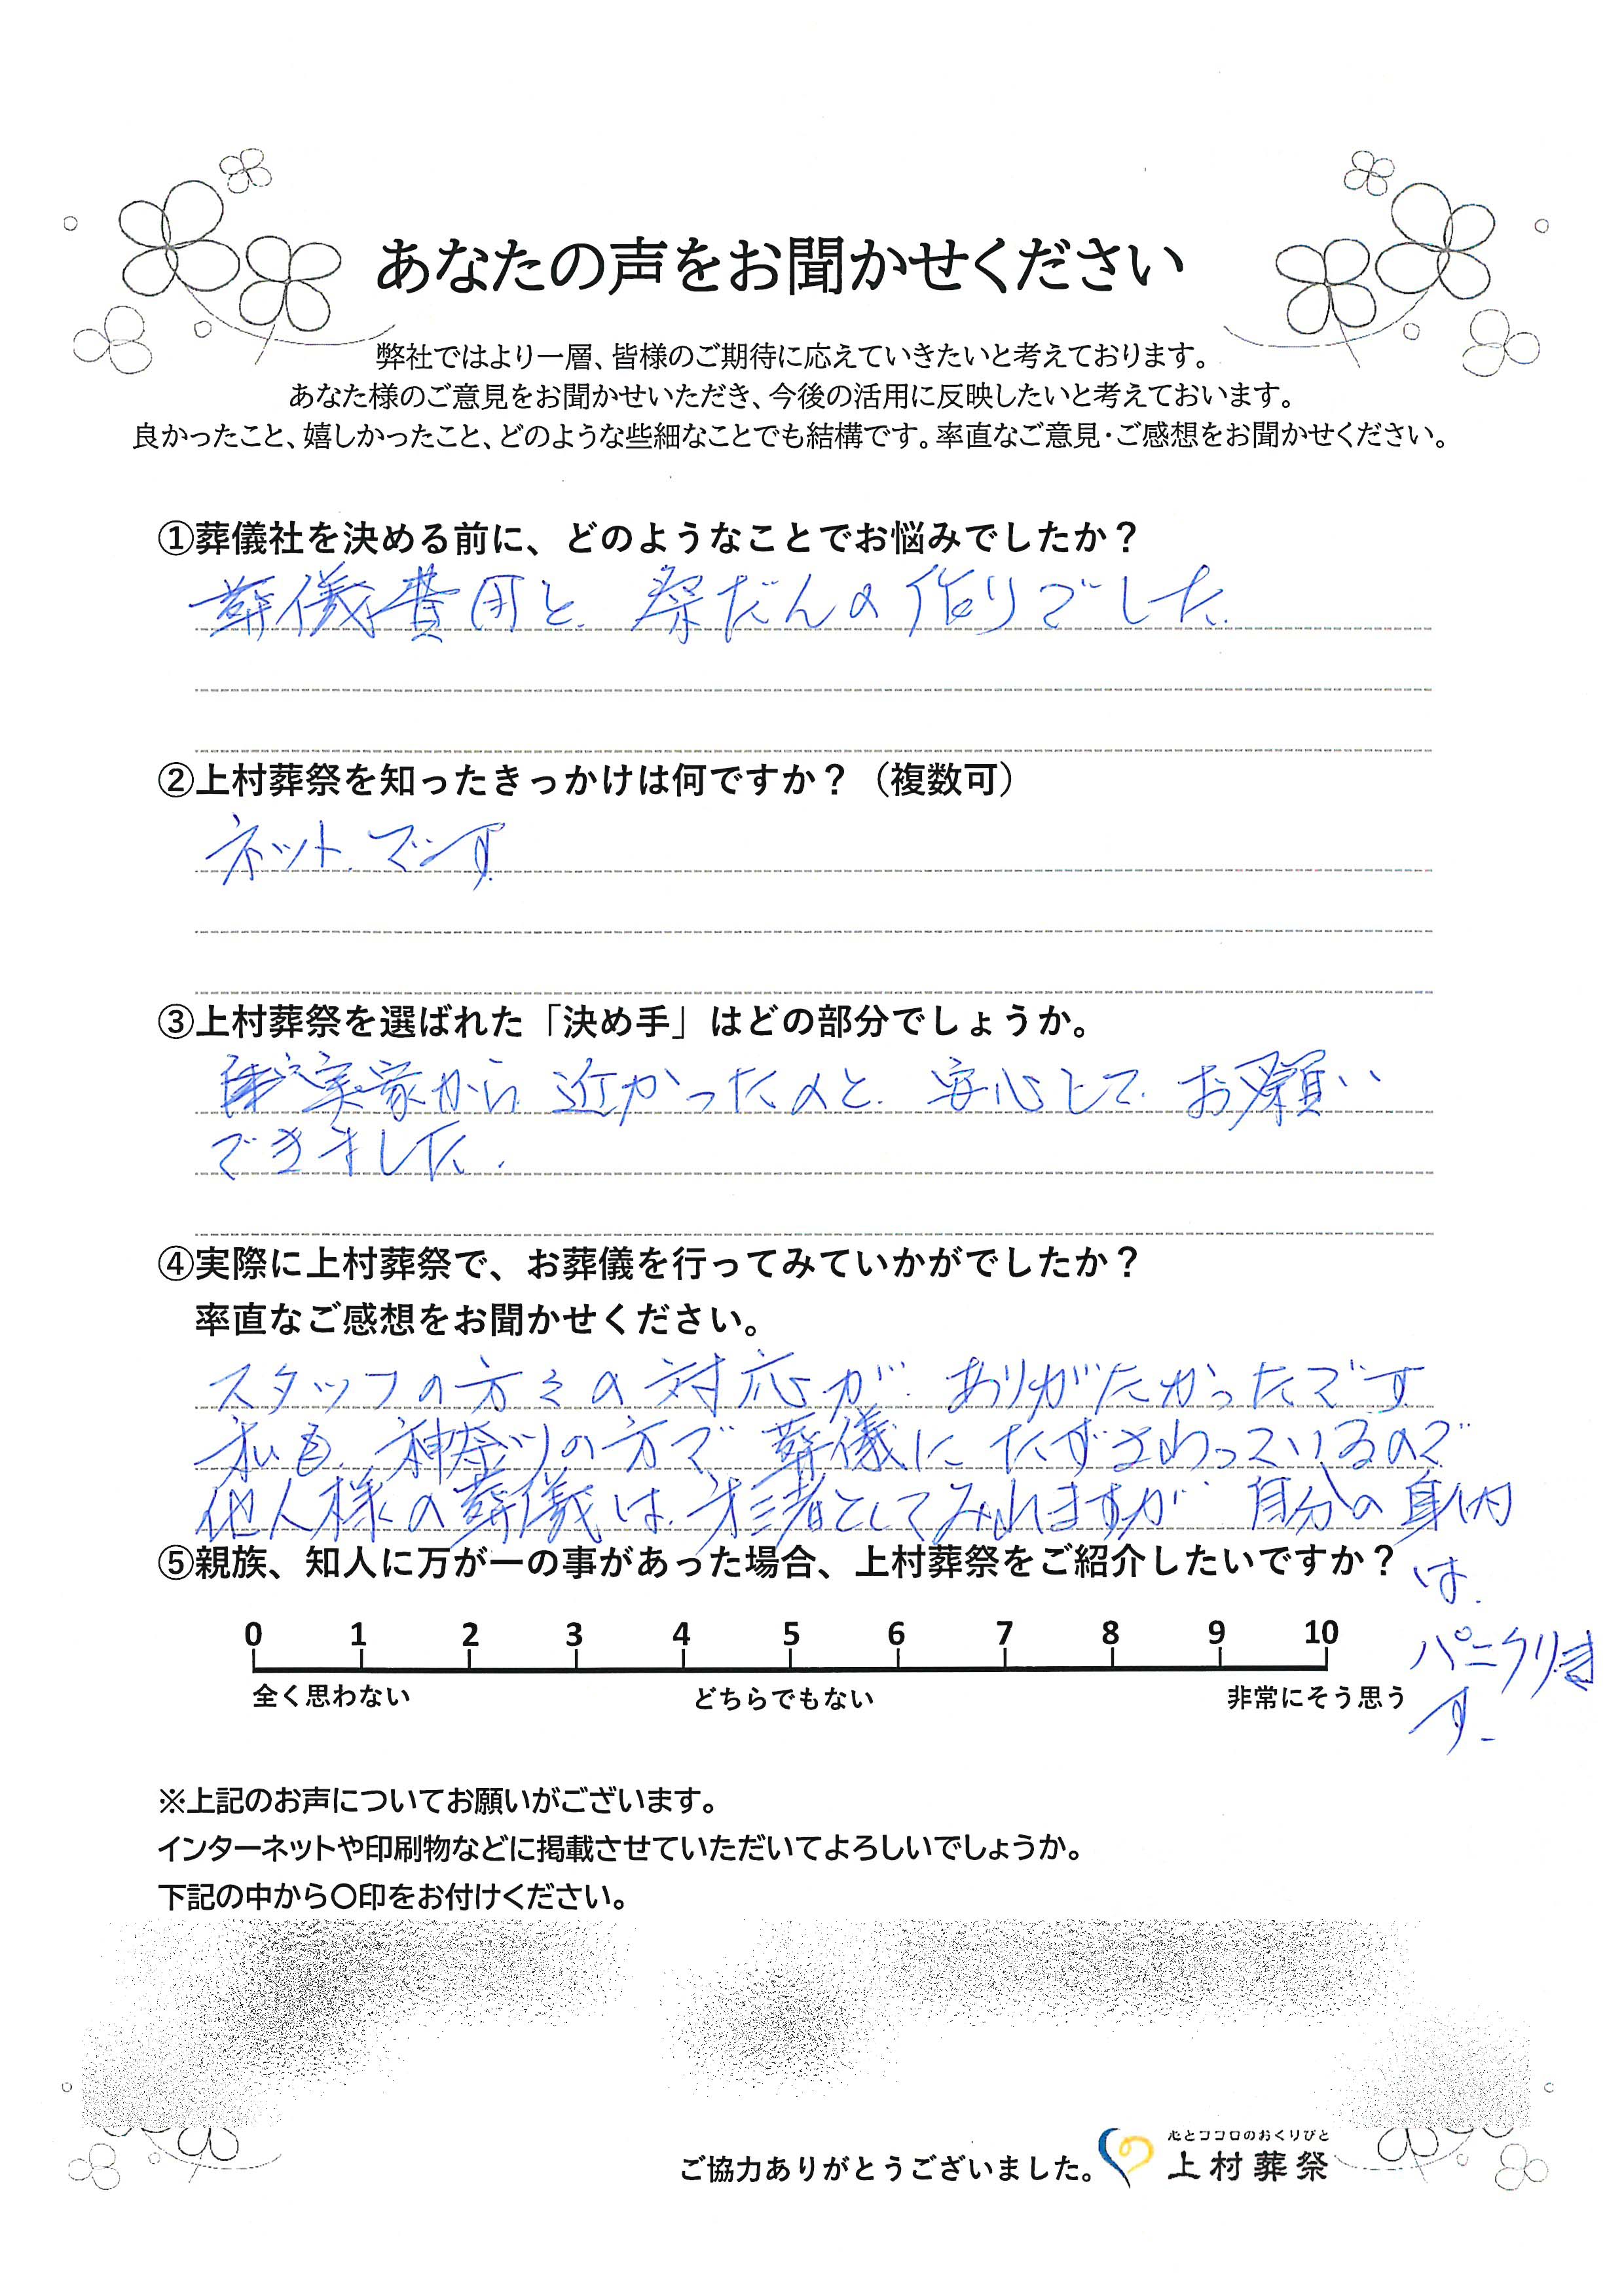 あなたの声をお聞かせください
弊社ではより一層、皆様のご期待に応えていきたいと考えております。
あなた様のご意見をお聞かせいただき、今後の活用に反映したいと考えておいます。
良かったこと、嬉しかったこと、どのような些細なことでも結構です。率直なご意見・ご感想をお聞かせください。
①葬儀社を決める前に、どのようなことでお悩みでしたか？
葬儀費用と、祭だんの作りでした。
②上村葬祭を知ったきっかけは何ですか？（複数可）
ネットです
③上村葬祭を選ばれた「決め手」はどの部分でしょうか。
実家から近かったのと、安心して、お願い
できました。
④実際に上村葬祭で、お葬儀を行ってみていかがでしたか？
率直なご感想をお聞かせください。
スタッフの方々の対応が、ありがたかったです
私も、神奈川の方で葬儀にたずさわっているので
他人様の葬儀は、才三者としてみれますが、自分の身内
⑤親族、知人に万が一の事があった場合、上村葬祭をご紹介したいですか？
は、
0 1 2 3 4 5 6 7 8 9 10
パニクりま
す。
全く思わない どちらでもない 非常にそう思う
※上記のお声についてお願いがございます。
インターネットや印刷物などに掲載させていただいてよろしいでしょうか。
下記の中から〇印をお付けください。
ご協力ありがとうございました。
心とココロのおくりびと
上村葬祭